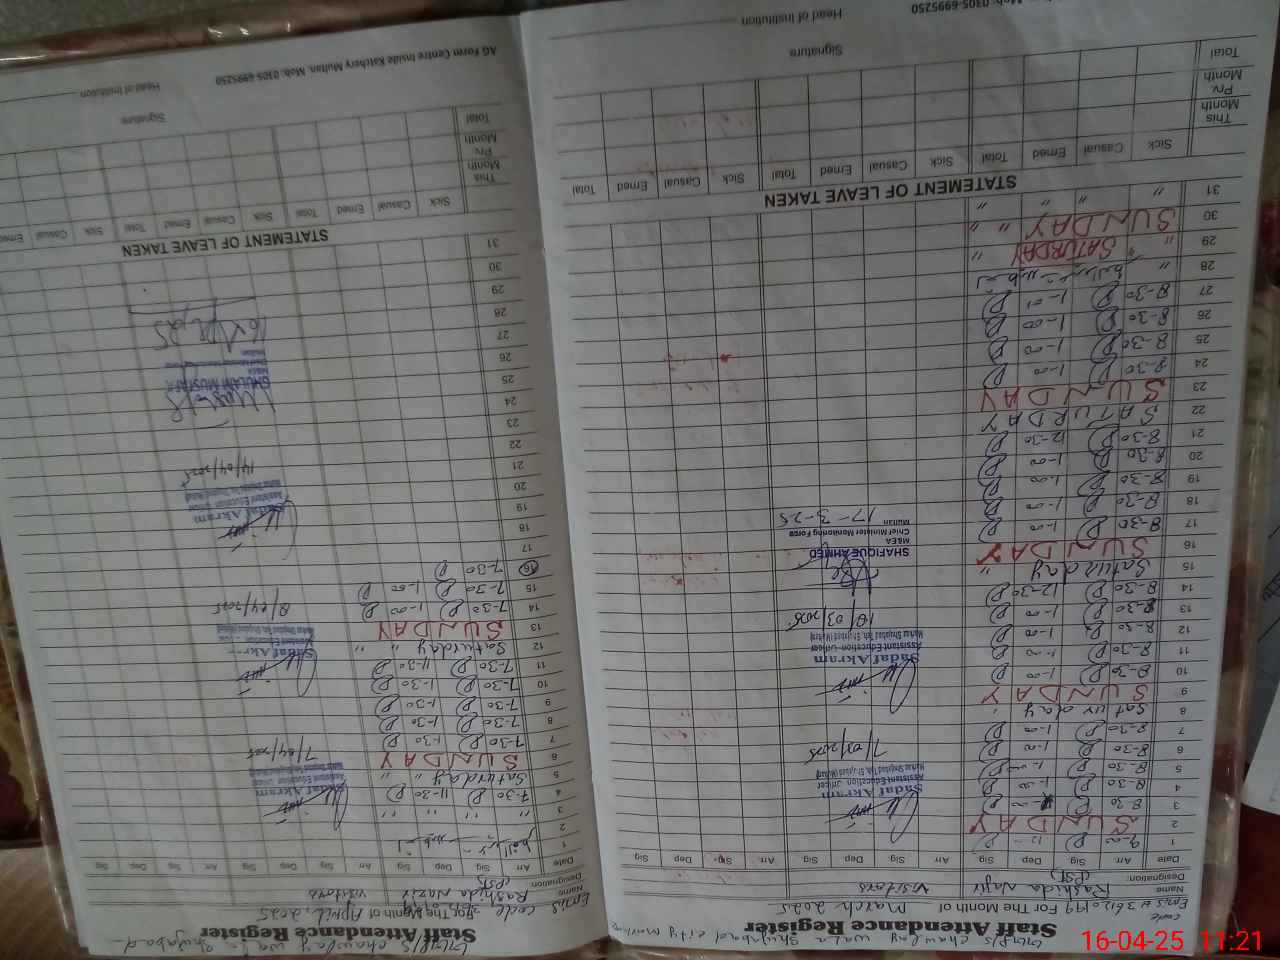 Staff Attendance Register
code
Emis # 36120199 For The Month of March 2025
Name Rashida Nazir
Designation: (PST)
visitors
Date Arr Sig Dep Sig Arr Sig Dep Sig
1 9-00 P 12- P
2 SUNDAY
3 8-30 P P
4 8-30 P 1-00 P
5 8-30 P 1-00 P
6 8-30 P 1-00 P
7 8-30 P 1-00 P
8 Saturday "
9 SUNDAY
10 8-30 P 1-00 P
11 8-30 P 1-00 P
12 8-30 P 1-00 P
13 8-30 P 1-00 P
14 8-30 P 12-30 P
15 Saturday "
16 SUNDAY
17 8-30 P 1-00 P
18 8-30 P 1-00 P
19 8-30 P 1-00 P
20 8-30 P 1-00 P
21 8-30 P 12-30 P
22 SATURDAY
23 SUNDAY
24 8-30 P 1-00 P
25 8-30 P 1-00 P
26 8-30 P 1-00 P
27 8-30 P 1-01 P
28 "
29 " SATURDAY "
30 SUNDAY " "
31 " " " "
Sadaf Akram
Assistant Education Officer
7/03/2025
Sadaf Akram
Assistant Education Officer
10/03/2025
SHAFIQUE AHMED
MEA
Chief Minister Monitoring Force
Multan
17-3-25
STATEMENT OF LEAVE TAKEN
Sick Casual Erned Total Sick Casual Erned Total Sick Casual Erned Total
This Month
Prv. Month
Total
Signature
Head of Institution
Mob: 0305-6995250
Staff Attendance Register
Emis code 36120199 For The Month of April 2025
Name Rashida Nazir
Designation (PST)
visitors
Date Arr Sig Dep Sig Arr Sig Dep Sig Arr Sig Dep Sig
1
2
3 " " " "
4 7-30 P 11-30 P
5 Saturday " "
6 SUNDAY
7 7-30 P 1-30 P
8 7-30 P 1-30 P
9 7-30 P 1-30 P
10 7-30 P 1-30 P
11 7-30 P 11-30 P
12 Saturday " "
13 SUNDAY
14 7-30 P 1-00 P
15 7-30 P 1-00 P
16 7-30 P
17
18
19
20
21
22
23
24
25
26
27
28
29
30
31
Sadaf Akram
Assistant Education Officer
7/04/2025
Sadaf Akram
Assistant Education Officer
8/04/2025
Sadaf Akram
Assistant Education Officer
14/04/2025
GHULAM MUSTAFA
MEA
16 APR, 25
STATEMENT OF LEAVE TAKEN
Sick Casual Erned Total Sick Casual Erned Total Sick Casual Erned
This Month
Prv. Month
Total
Signature
Head of Institution
AG Form Centre Inside Katchery Multan. Mob: 0305-6995250
16-04-25 11:21